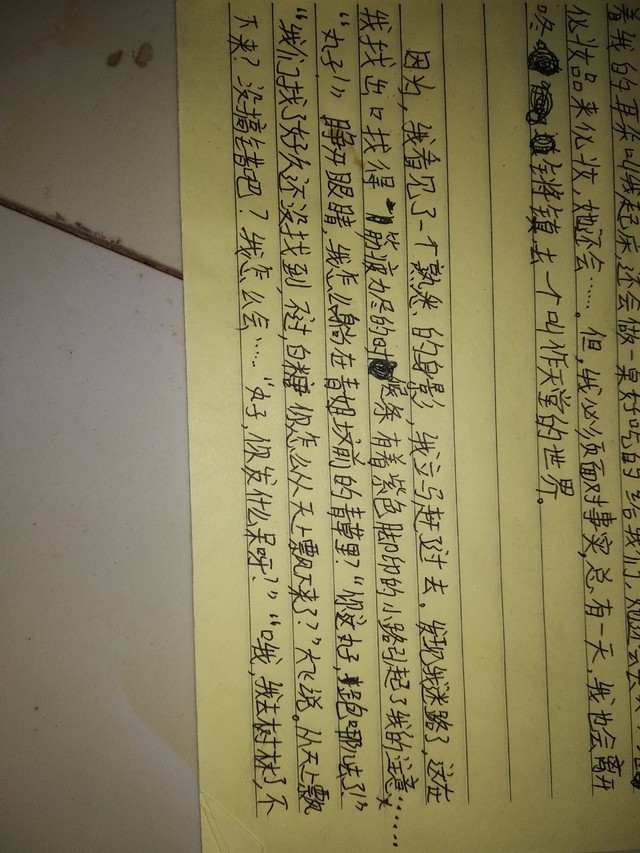 着我的耳朵叫我起床,还会做一桌好吃的给我们,她还会去
化妆品来化妆,她还会……。但,我必须面对事实,总有一天,我也会离开
咚 锵锵镇 去一个叫作天堂的世界。
因为,我看见了一个熟悉的身影,我立马赶了过去。发现我迷路了,这在
我找出口找得筋疲力尽的时候条有着紫色脚印的小路引起了我的注意……
“丸子!”睁开眼睛,我怎么躺在青姐坟前的青草里?“你这丸子,跑哪儿去了!”
“我们找了好久还没找到,不过,白糖你怎么从天上飘下来了?”大飞说。从天上飘
下来?没搞错吧?我怎么会……“丸子,你发什么呆呀?”“哦,我去树林了,不